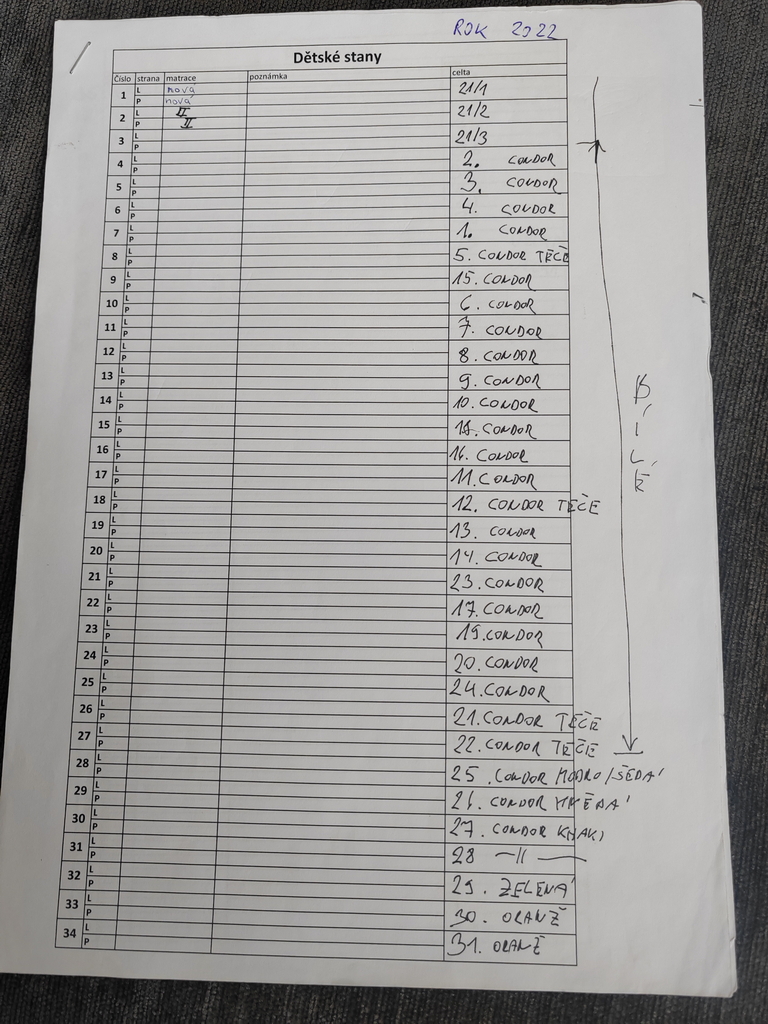 ROK 2022
Dětské stany
Číslo strana matrace poznámka celta
1 L nová 21/1
P nová
2 L II 21/2
P II
3 L 21/3
P
4 L 2. CONDOR
P
5 L 3. CONDOR
P
6 L 4. CONDOR
P
7 L 1. CONDOR
P
8 L 5. CONDOR TEČE
P
9 L 15. CONDOR
P
10 L 6. CONDOR
P
11 L 7. CONDOR
P
12 L 8. CONDOR
P
13 L 9. CONDOR
P
14 L 10. CONDOR
P
15 L CONDOR
P
16 L 16. CONDOR
P
17 L 11. CONDOR
P
18 L 12. CONDOR TEČE
P
19 L 13. CONDOR
P
20 L 14. CONDOR
P
21 L 23. CONDOR
P
22 L 17. CONDOR
P
23 L 19. CONDOR
P
24 L 20. CONDOR
P
25 L 24. CONDOR
P
26 L 21. CONDOR TEČE
P
27 L 22. CONDOR TEČE
P
28 L 25. CONDOR MODRO/ŠEDÁ
P
29 L 26. CONDOR HNĚDÁ
P
30 L 27. CONDOR KHAKI
P
31 L 28 —||—
P
32 L 29. ZELENÁ
P
33 L 30. ORANŽ
P
34 L 31. ORANŽ
P
BÍLÉ